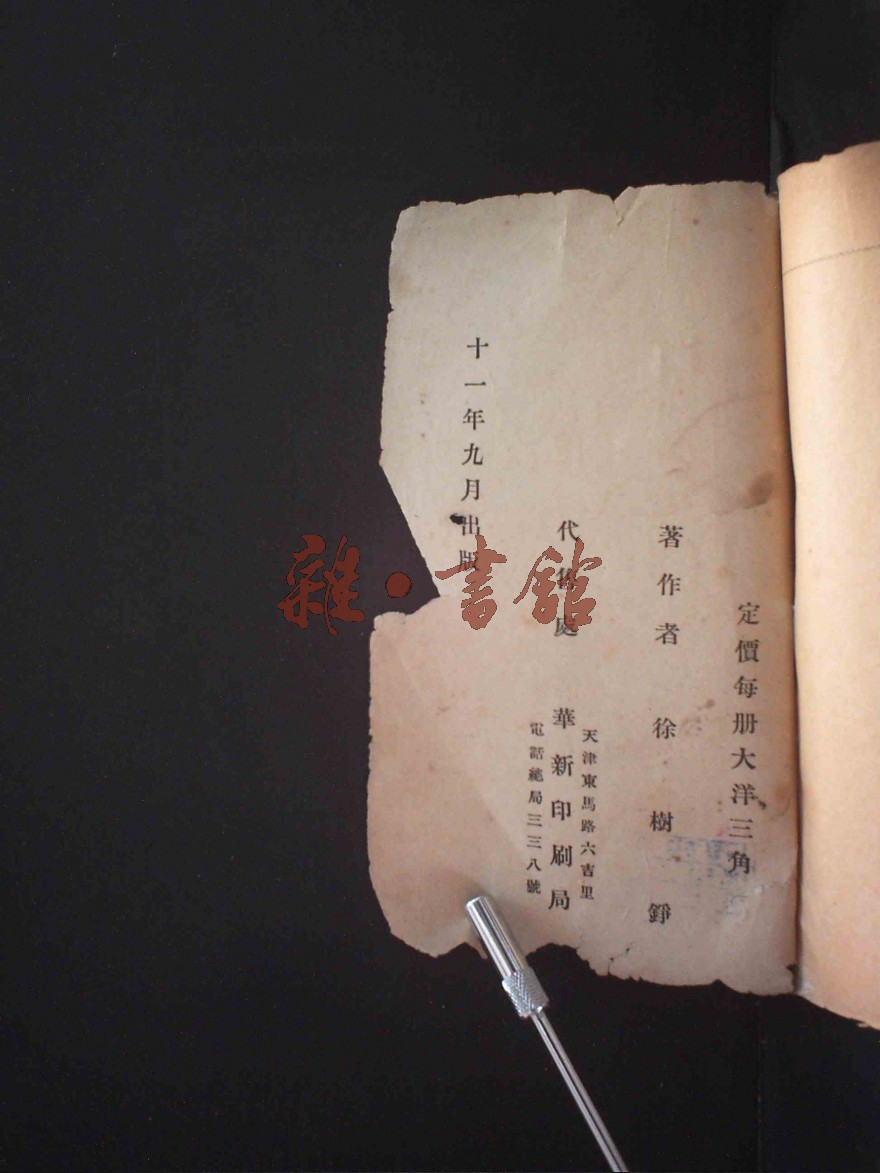 定價每册大洋三角
著作者 徐樹錚
天津東馬路六吉里
代 處 華新印刷局
電話總局三三八號
十一年九月出版
雜·書館